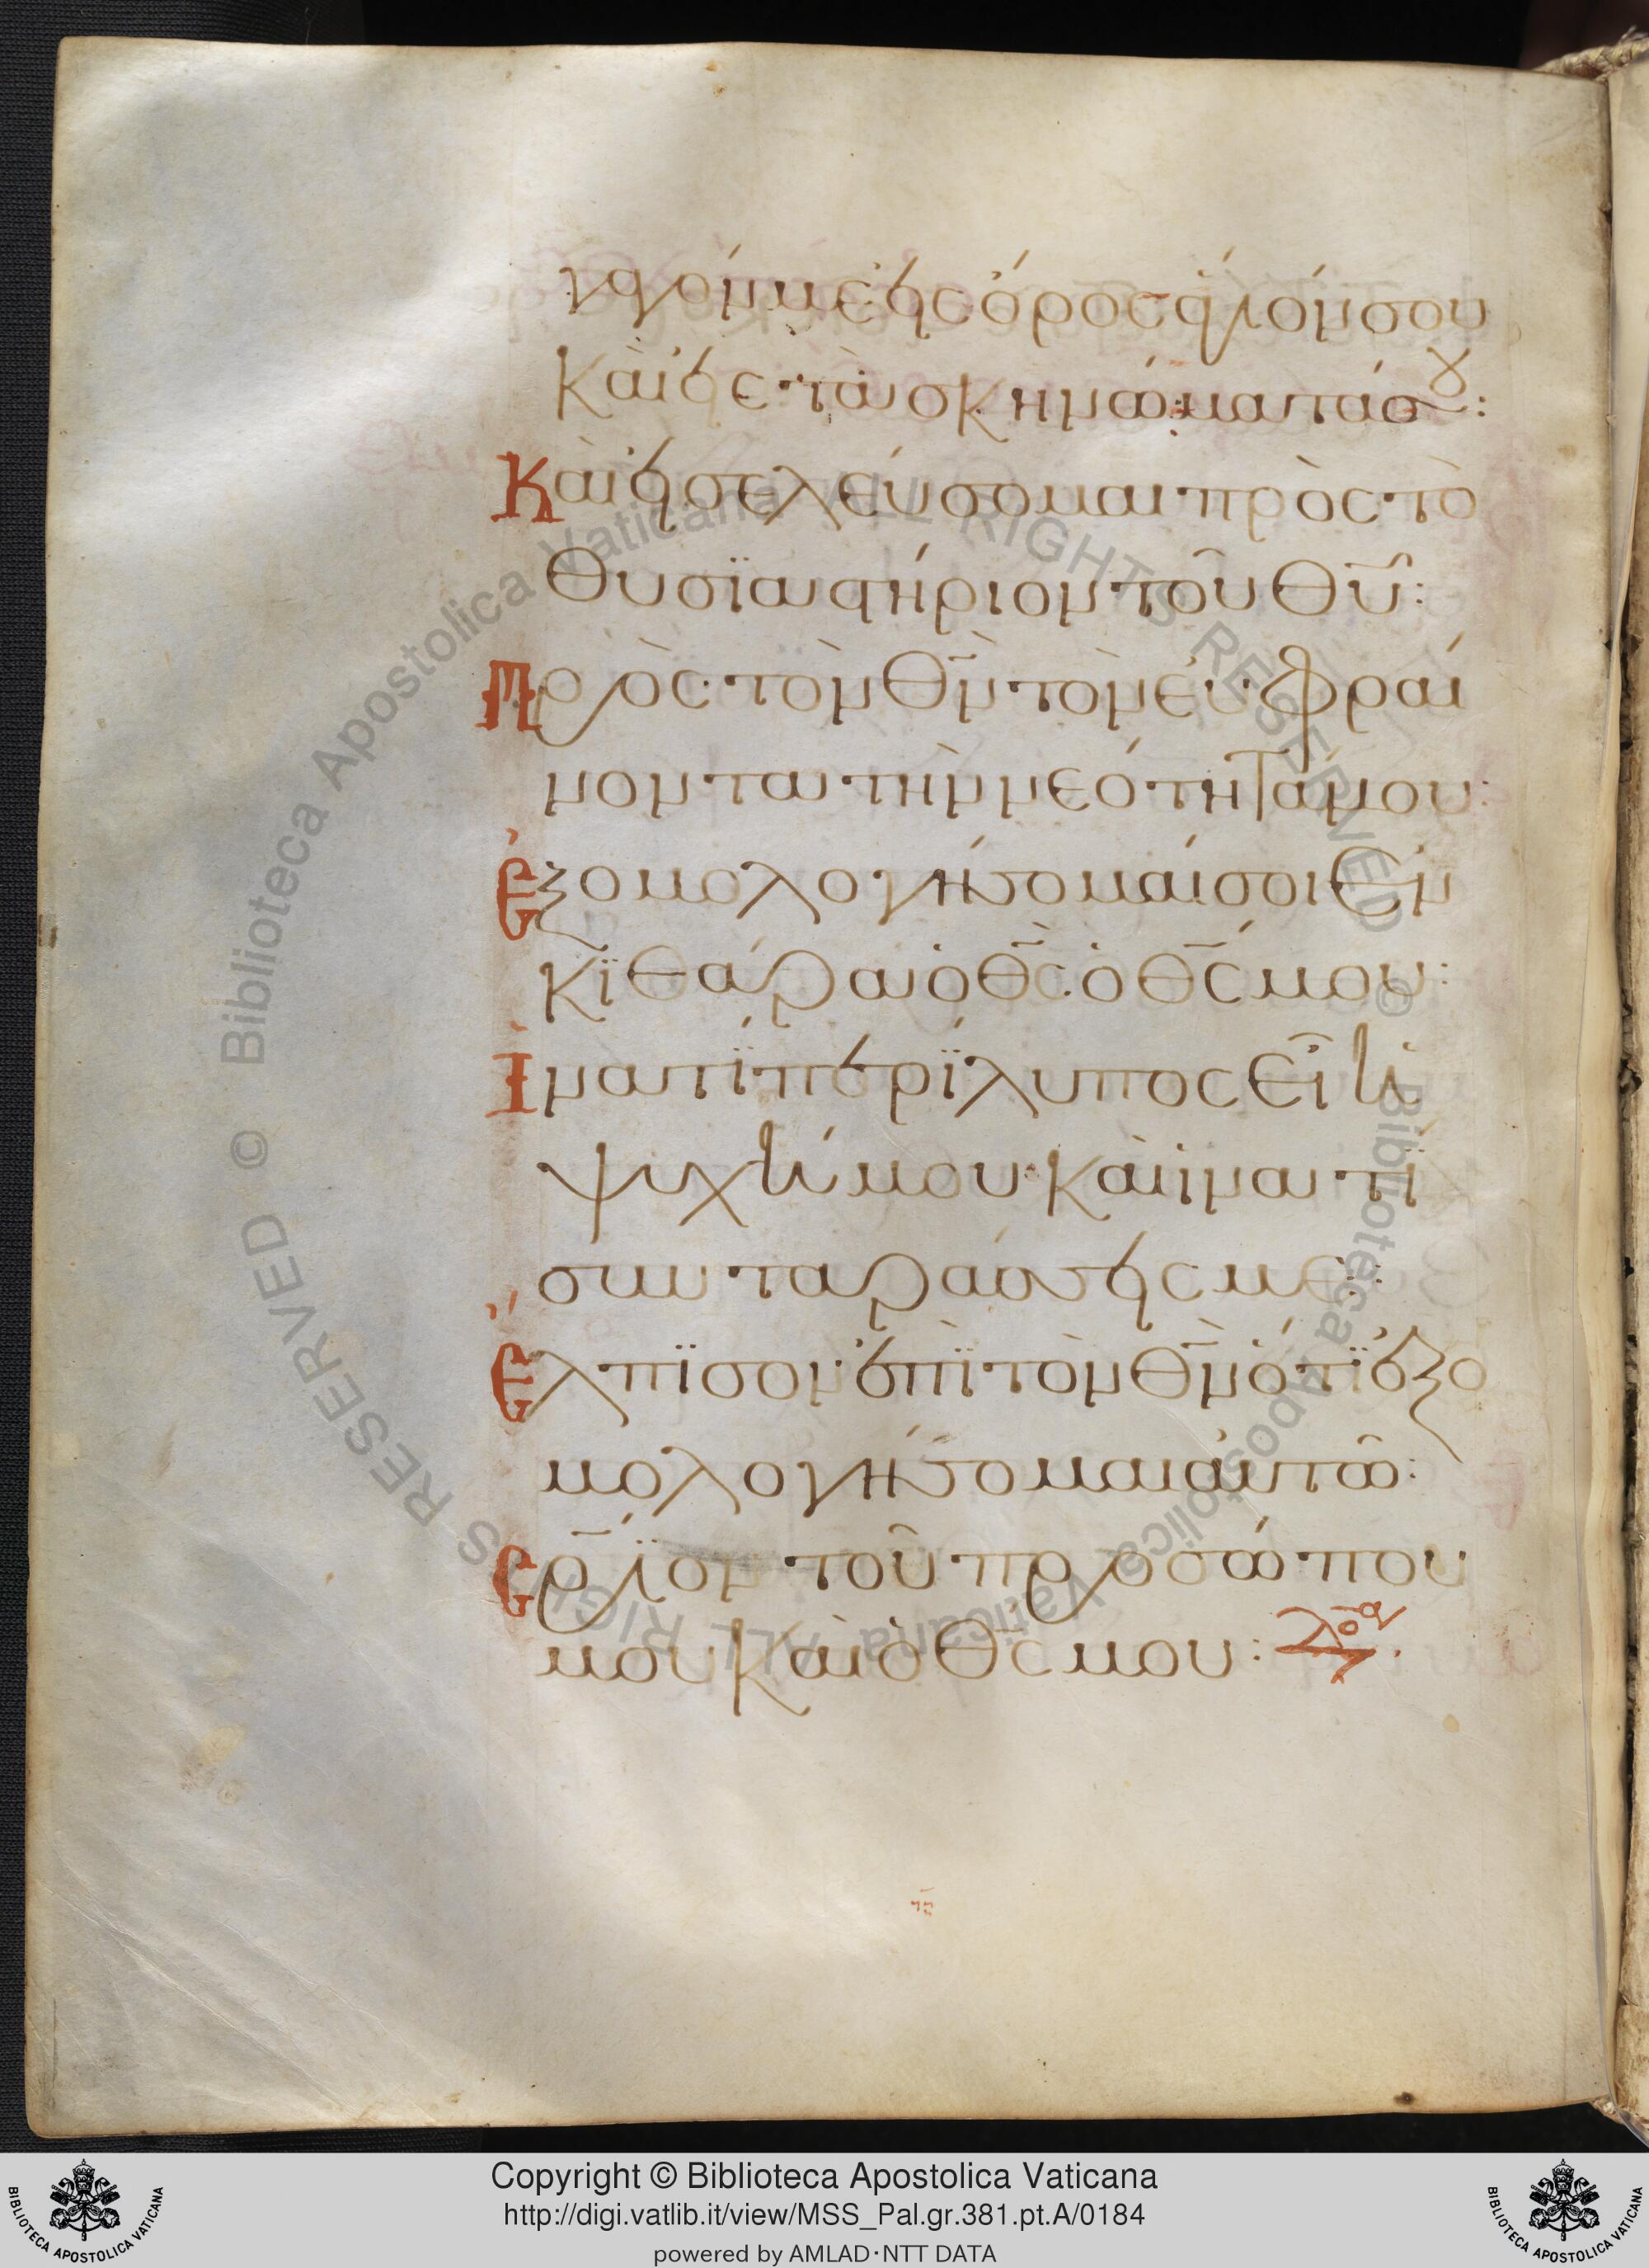 γαγόν με εἰς ὄρος ἅγιόν σου
καὶ εἰς τὰ σκηνώματά σου:
Καὶ εἰσελεύσομαι πρὸς τὸ
θυσϊαστήριον τοῦ θυ̅:
Πρὸς τὸν θν̅ τὸν εὐφραί
νοντα τὴν νεότητά μου:
Ἐξομολογήσομαί σοι ἐν
κϊθάρα ὁ θς̅ ὁ θς̅ μου:
Ἱνατί περίλυπος εἶ ἡ
ψυχή μου καὶ ἱνατί
συνταράσσεις με:
Ἔλπϊσον ἐπὶ τὸν θν̅ ὅτϊ ἐξο
μολογήσομαι αὐτῶ:
Σρ̅ϊον τοῦ προσώπου
μου καὶ ὁ θς̅ μου:
Copyright © Biblioteca Apostolica Vaticana
http://digi.vatlib.it/view/MSS_Pal.gr.381.pt.A/0184
powered by AMLAD·NTT DATA
BIBLIOTECA APOSTOLICA VATICANA
BIBLIOTECA APOSTOLICA VATICANA